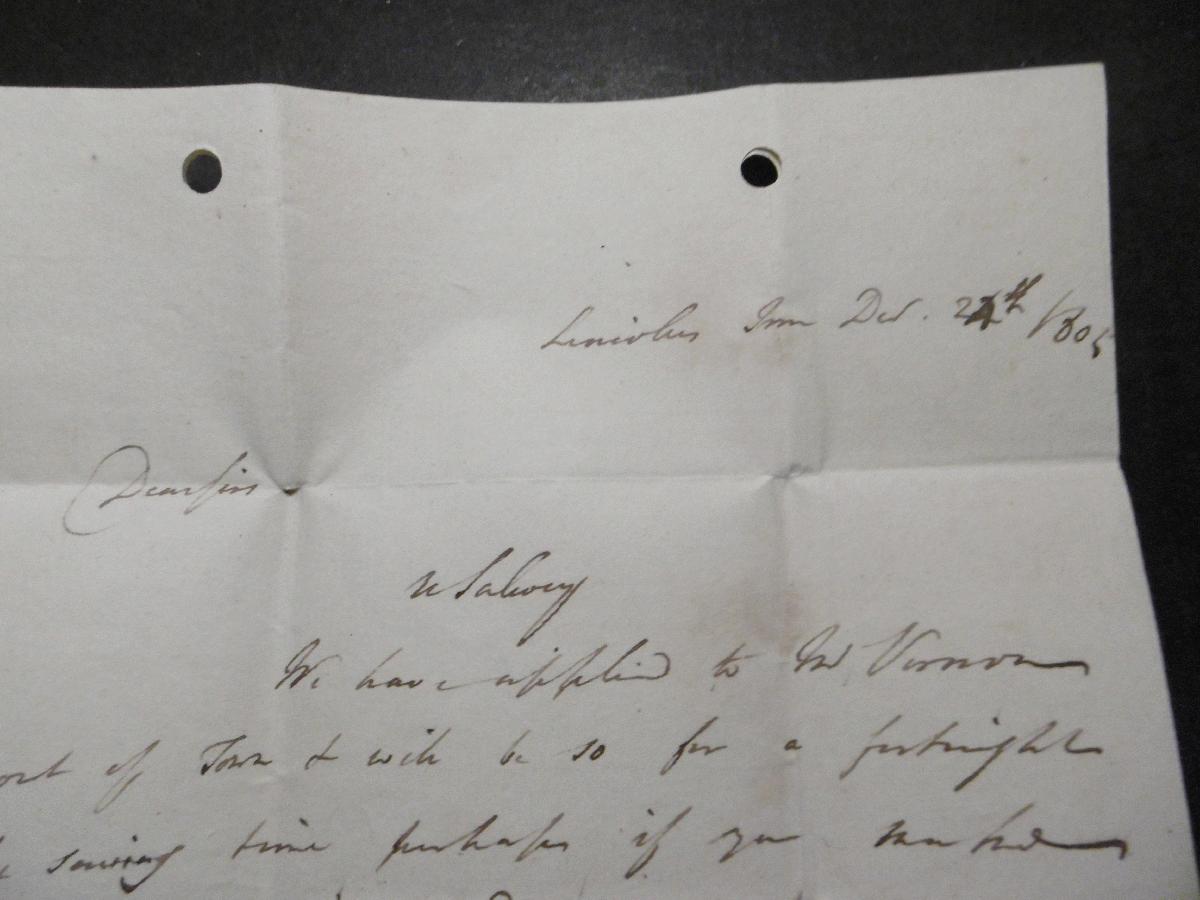 Lincolns Inn Dec. 24th 1805
Dear Sir
Salwey
We have applied to Mr Vernon
out of Town & will be so for a fortnight
saving time perhaps if you